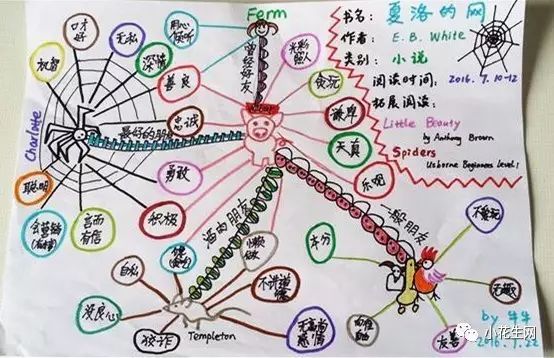 书名：夏洛的网
作者：E.B. White
类别：小说
阅读时间：2016.7.10-12
拓展阅读：
Little Beauty
by Anthony Brown
Spiders
Usborne Beginners Level 1
Fern
曾经好友
用心倾听
口才好
无私
深情
机智
Charlotte
聪明
言而有信
最好的朋友
善良
忠诚
勇敢
积极
光彩照人
贪玩
谦卑
天真
乐观
酒肉朋友
一般朋友
自私
没良心
狡诈
懒散
不讲道德
无高尚感情
Templeton
本分
友善
无趣
不爱玩
by 牛牛
2016.7.22
小花生网